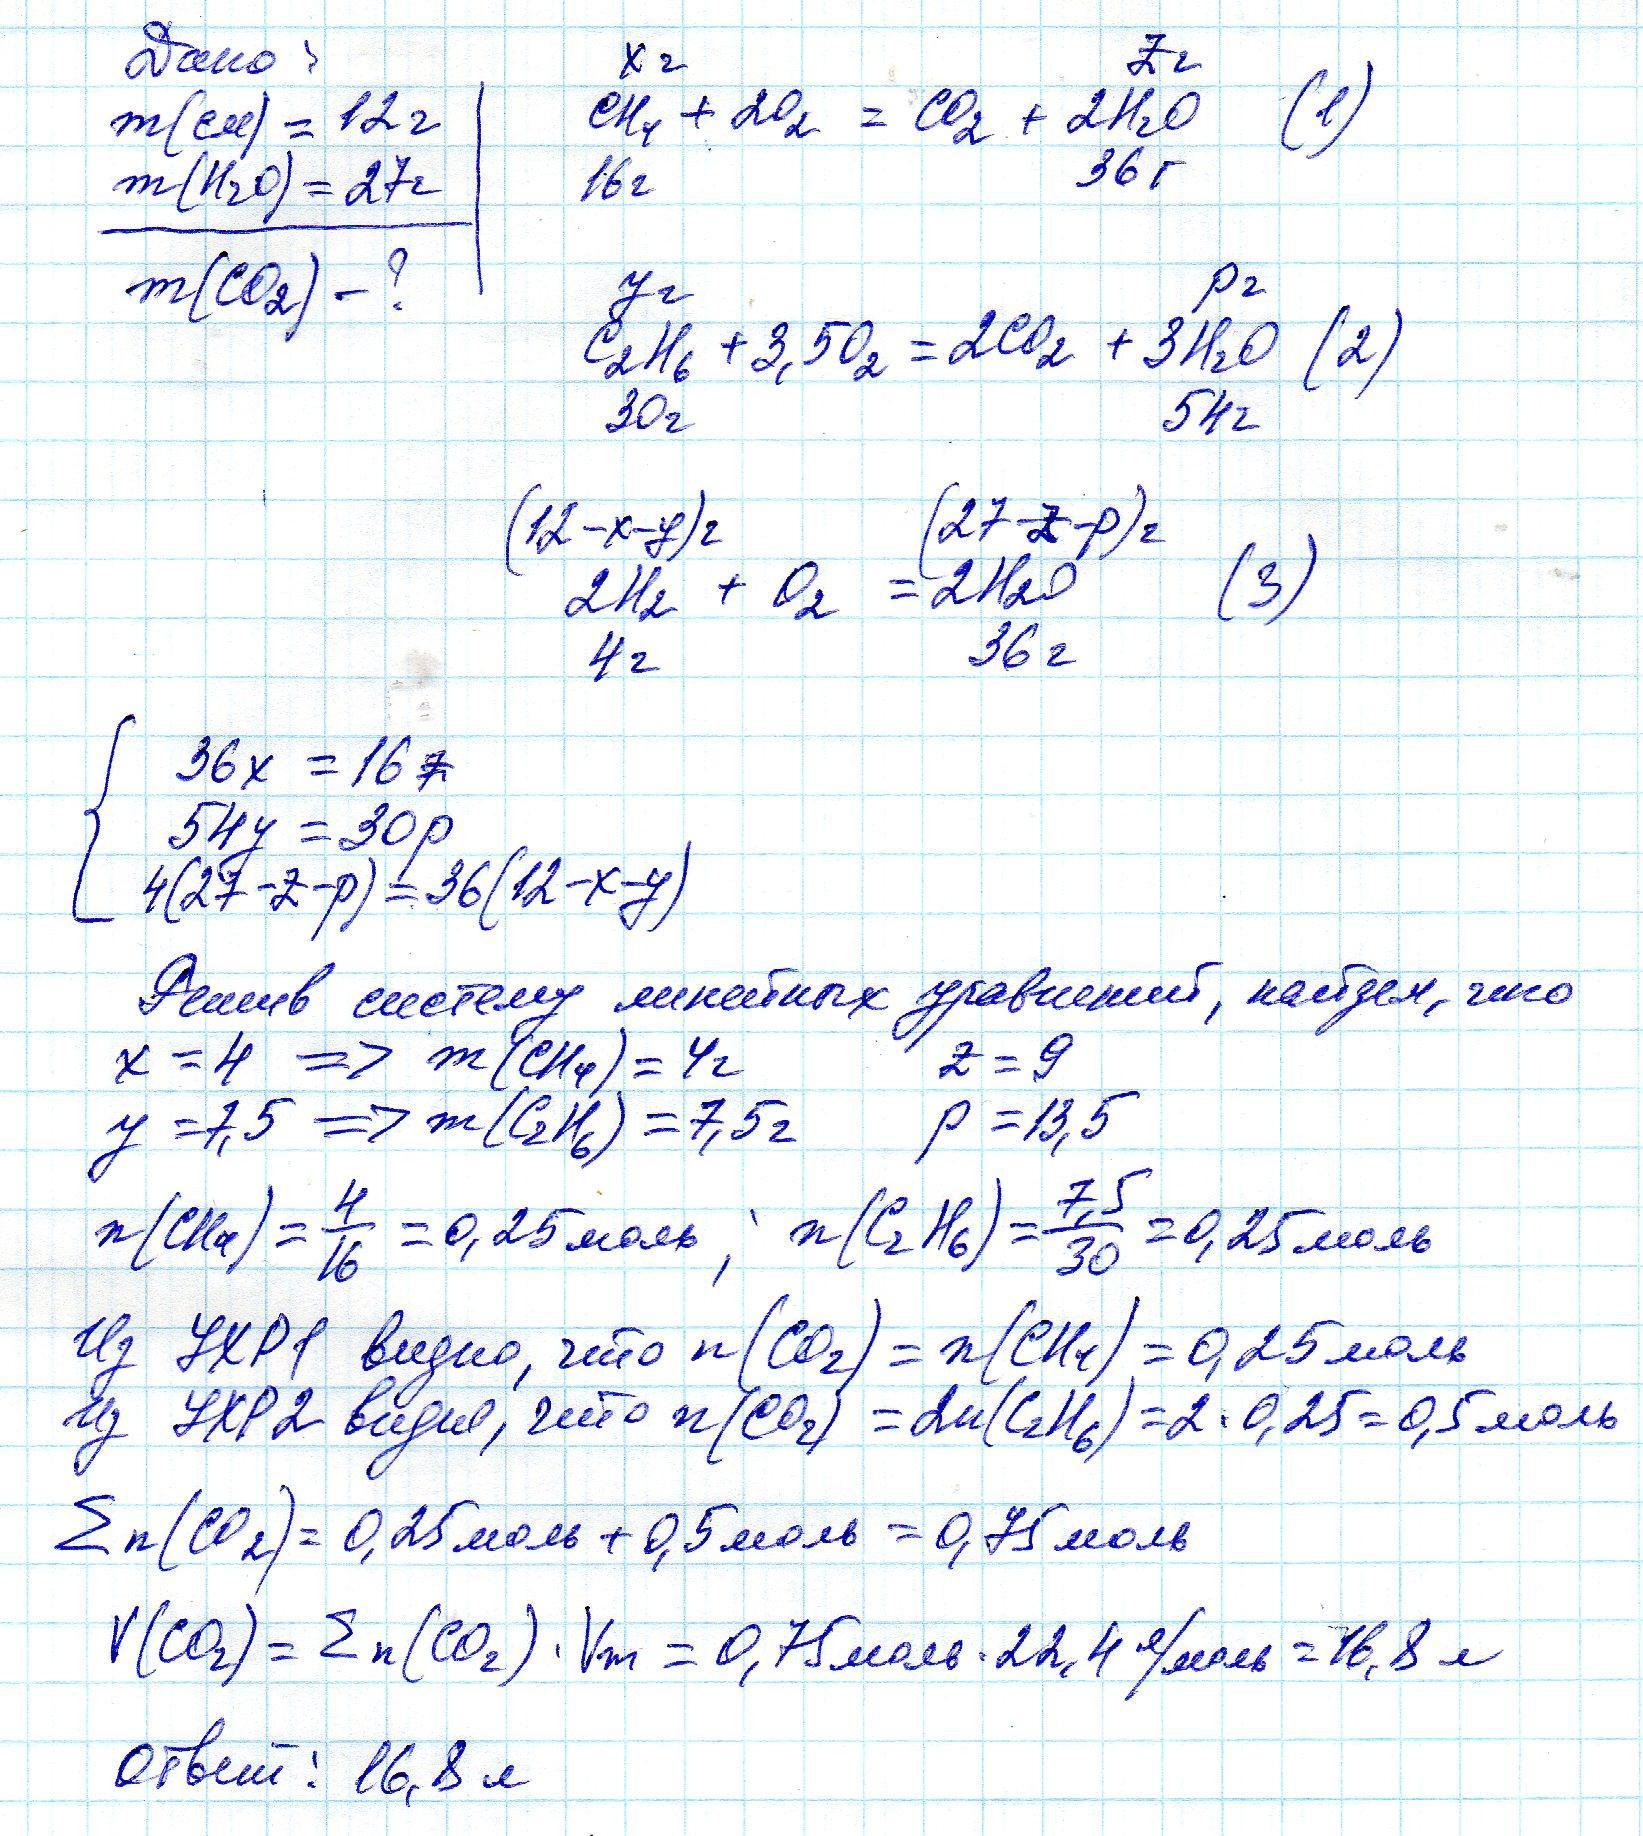 Дано:
m(см) = 12г
m(H₂O) = 27г
m(CO₂) - ?
xг zг
CH₄ + 2O₂ = CO₂ + 2H₂O (1)
16г 36г
yг pг
C₂H₆ + 3,5O₂ = 2CO₂ + 3H₂O (2)
30г 54г
(12-x-y)г (27-z-p)г
2H₂ + O₂ = 2H₂O (3)
4г 36г
36x = 16z
54y = 30p
4(27-z-p) = 36(12-x-y)
Решив систему линейных уравнений, найдем, что
x = 4 => m(CH₄) = 4г z = 9
y = 7,5 => m(C₂H₆) = 7,5г p = 13,5
n(CH₄) = 4/16 = 0,25 моль; n(C₂H₆) = 7,5/30 = 0,25 моль
Из УХР1 видно, что n(CO₂) = n(CH₄) = 0,25 моль
Из УХР2 видно, что n(CO₂) = 2n(C₂H₆) = 2·0,25 = 0,5 моль
Σn(CO₂) = 0,25 моль + 0,5 моль = 0,75 моль
V(CO₂) = Σn(CO₂)·Vm = 0,75 моль·22,4 л/моль = 16,8 л
Ответ: 16,8 л